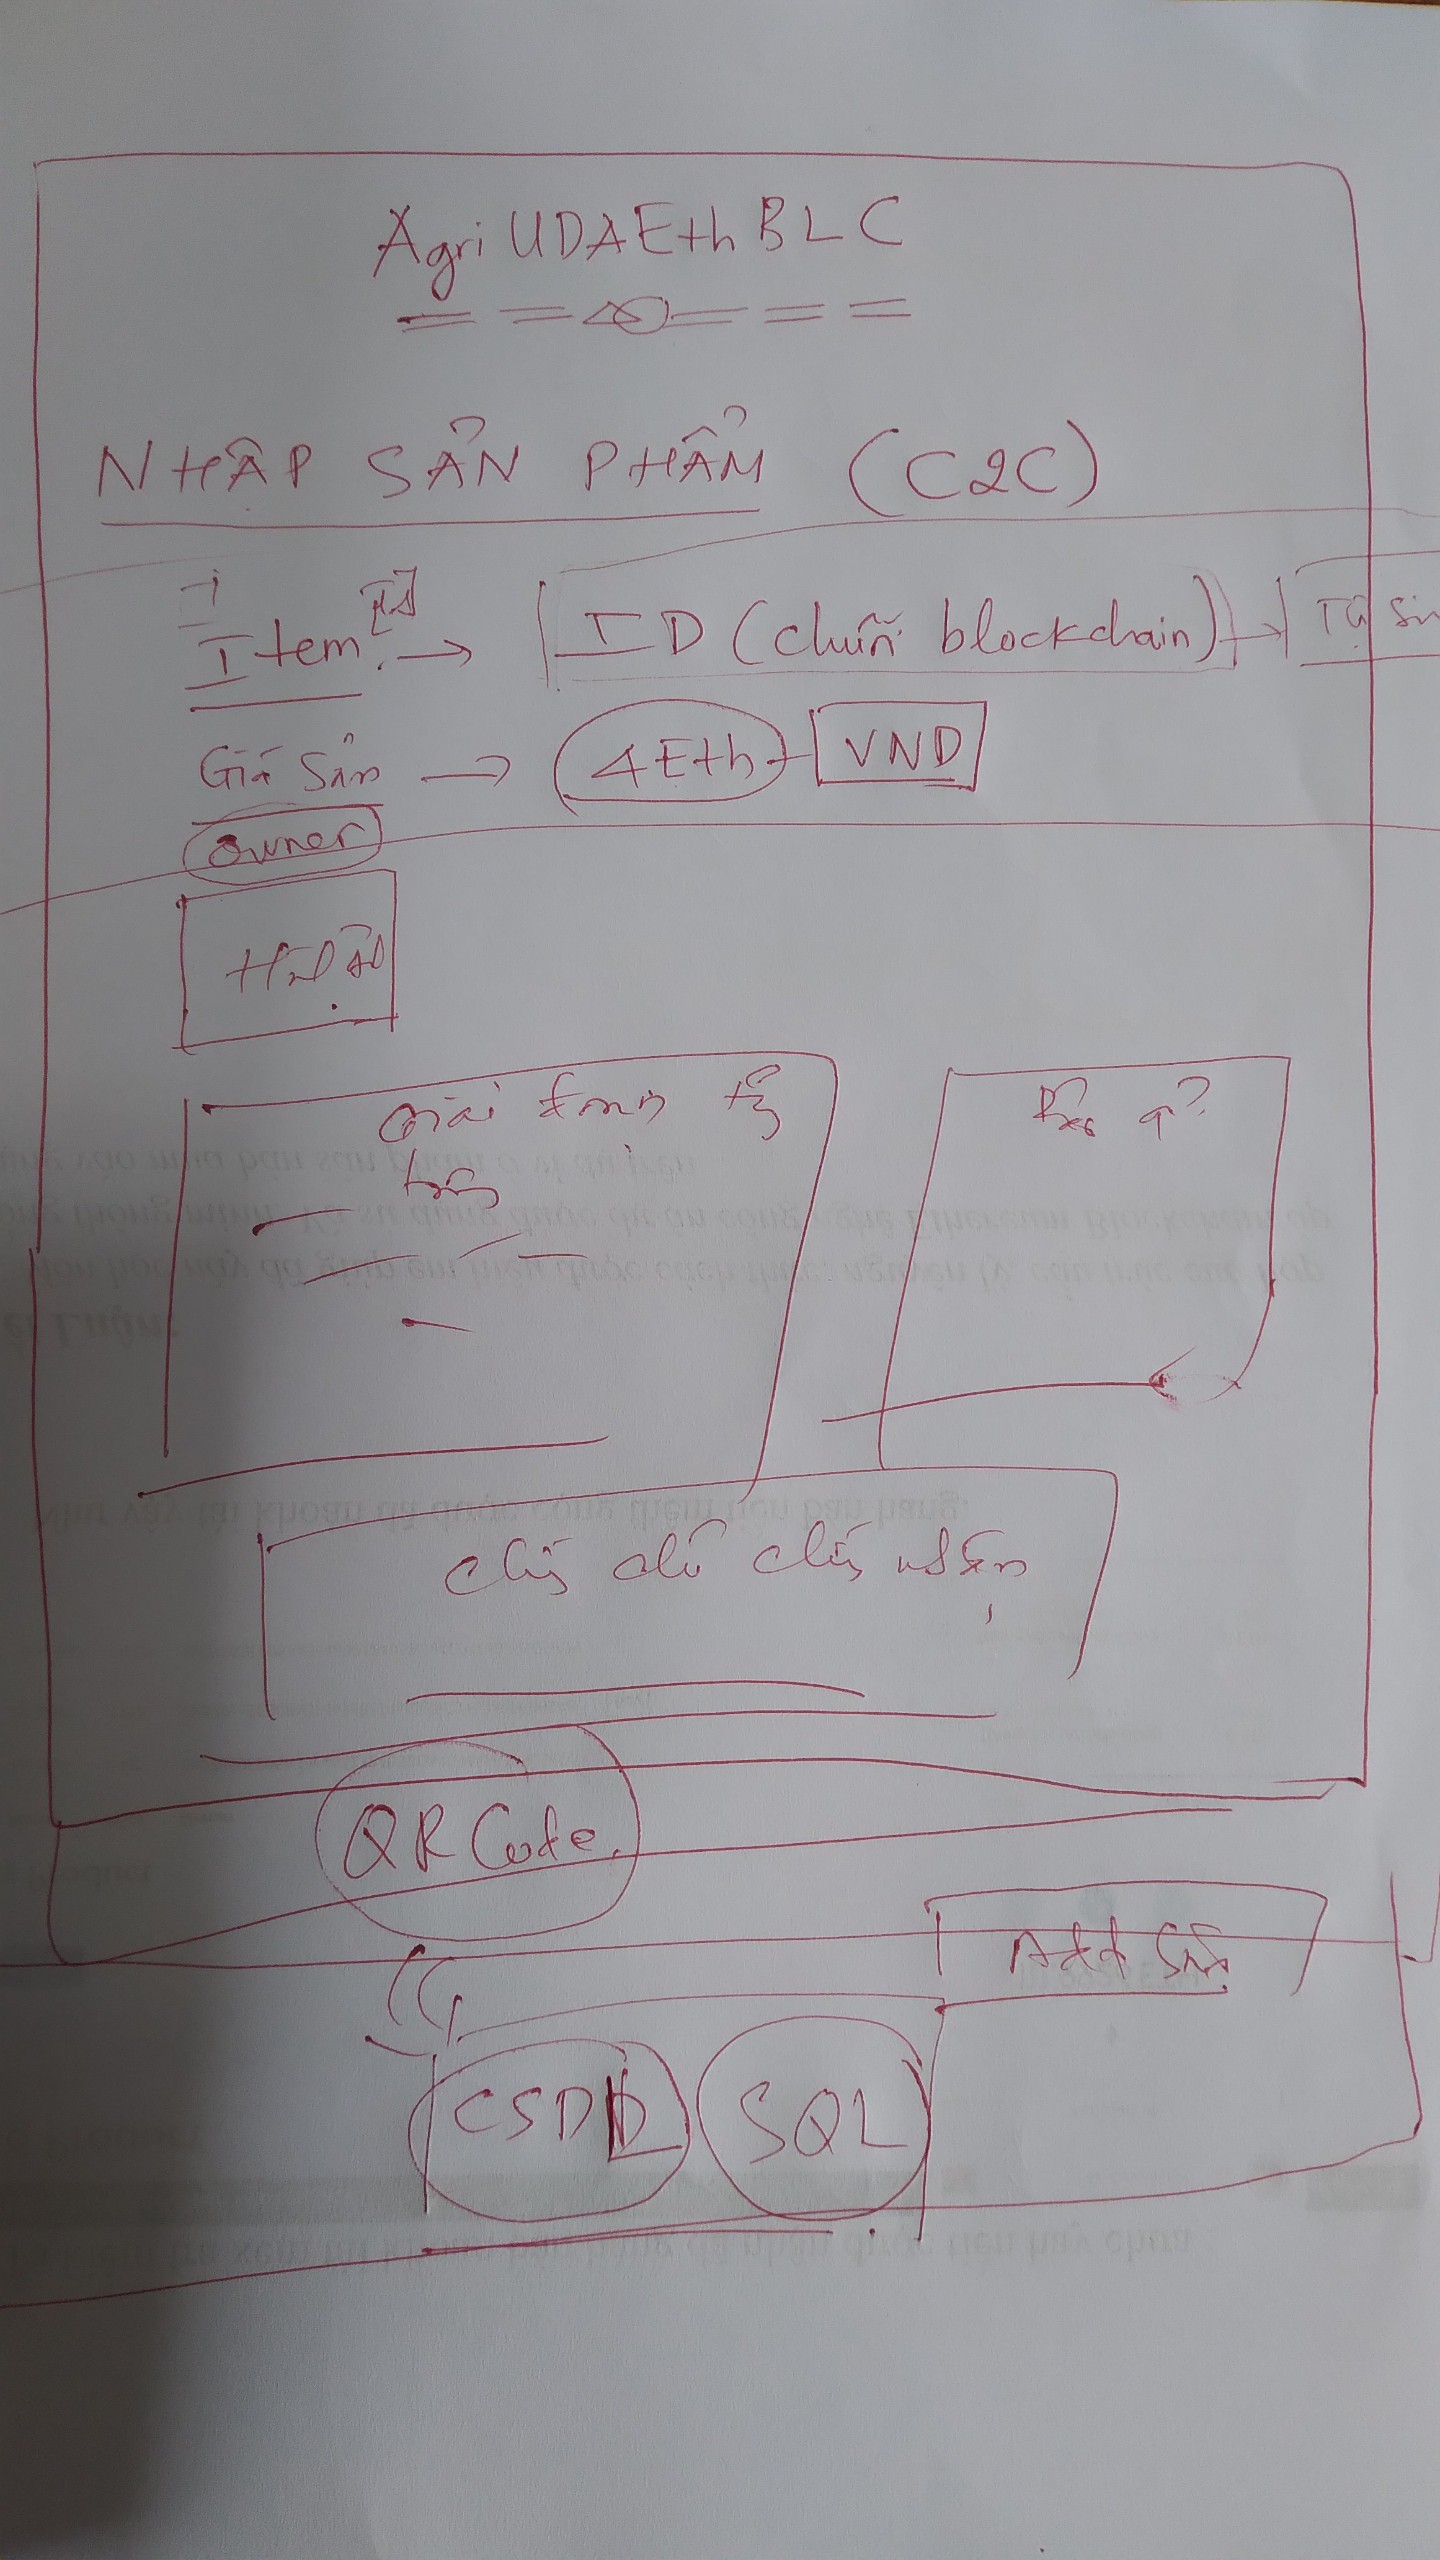 AgriUDAEthBLC
NHẬP SẢN PHẨM (C2C)
Item → ID (chuỗi blockchain) → Tự sin
Giá Sản → 4Eth - VND
owner
Hình ảnh
Giai đoạn
trồng
chứng chỉ chứng nhận
QR Code
Add Sản
CSDL SQL